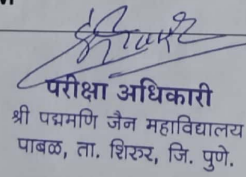 परीक्षा अधिकारी
श्री पद्ममणि जैन महाविद्यालय
पाबळ, ता. शिरुर, जि. पुणे.